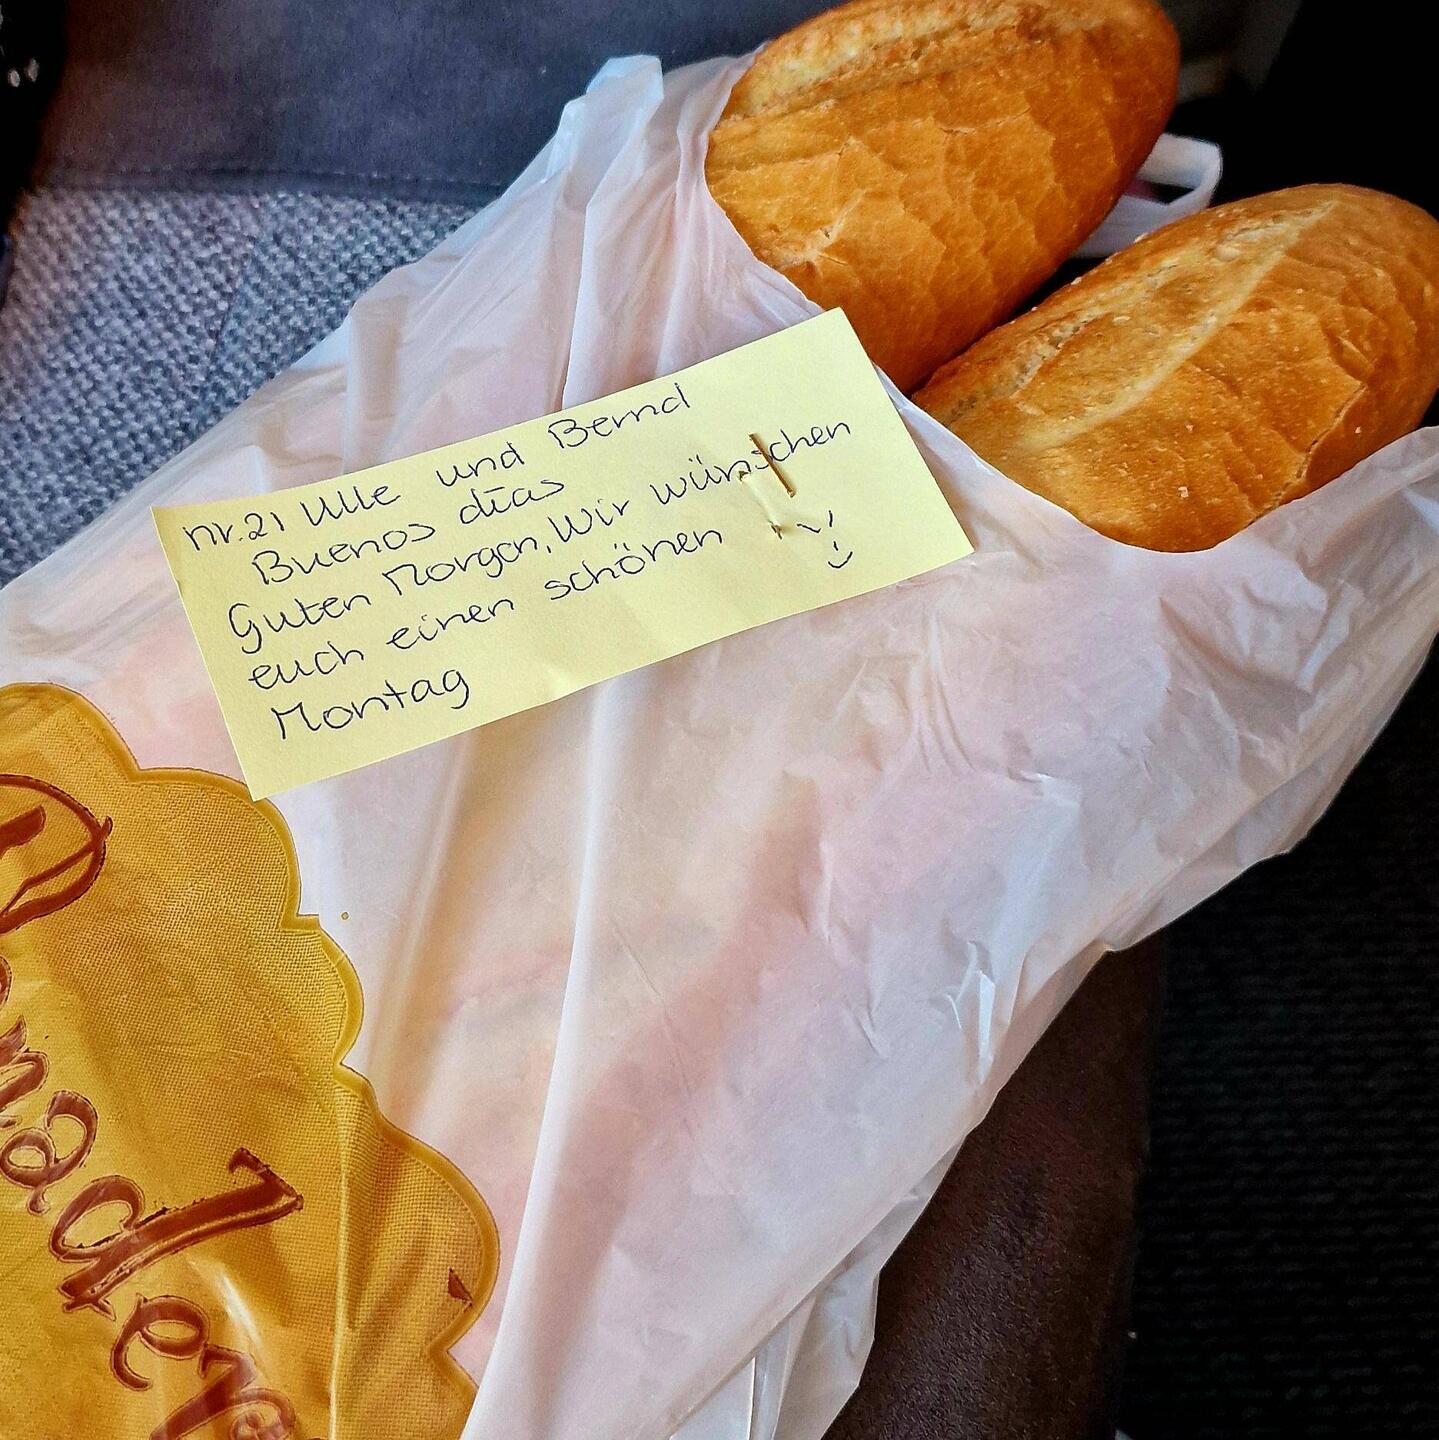 nr.21 Ulle und Bernd
Buenos días
Guten Morgen, Wir wünschen
euch einen schönen
Montag
Panadería